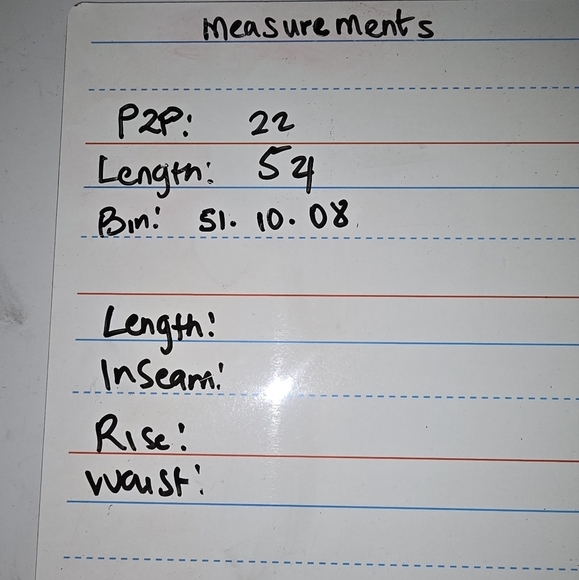 Measurements
P2P: 22
Length: 54
Bin: S1. 10. 08
Length:
Inseam:
Rise:
Waist: